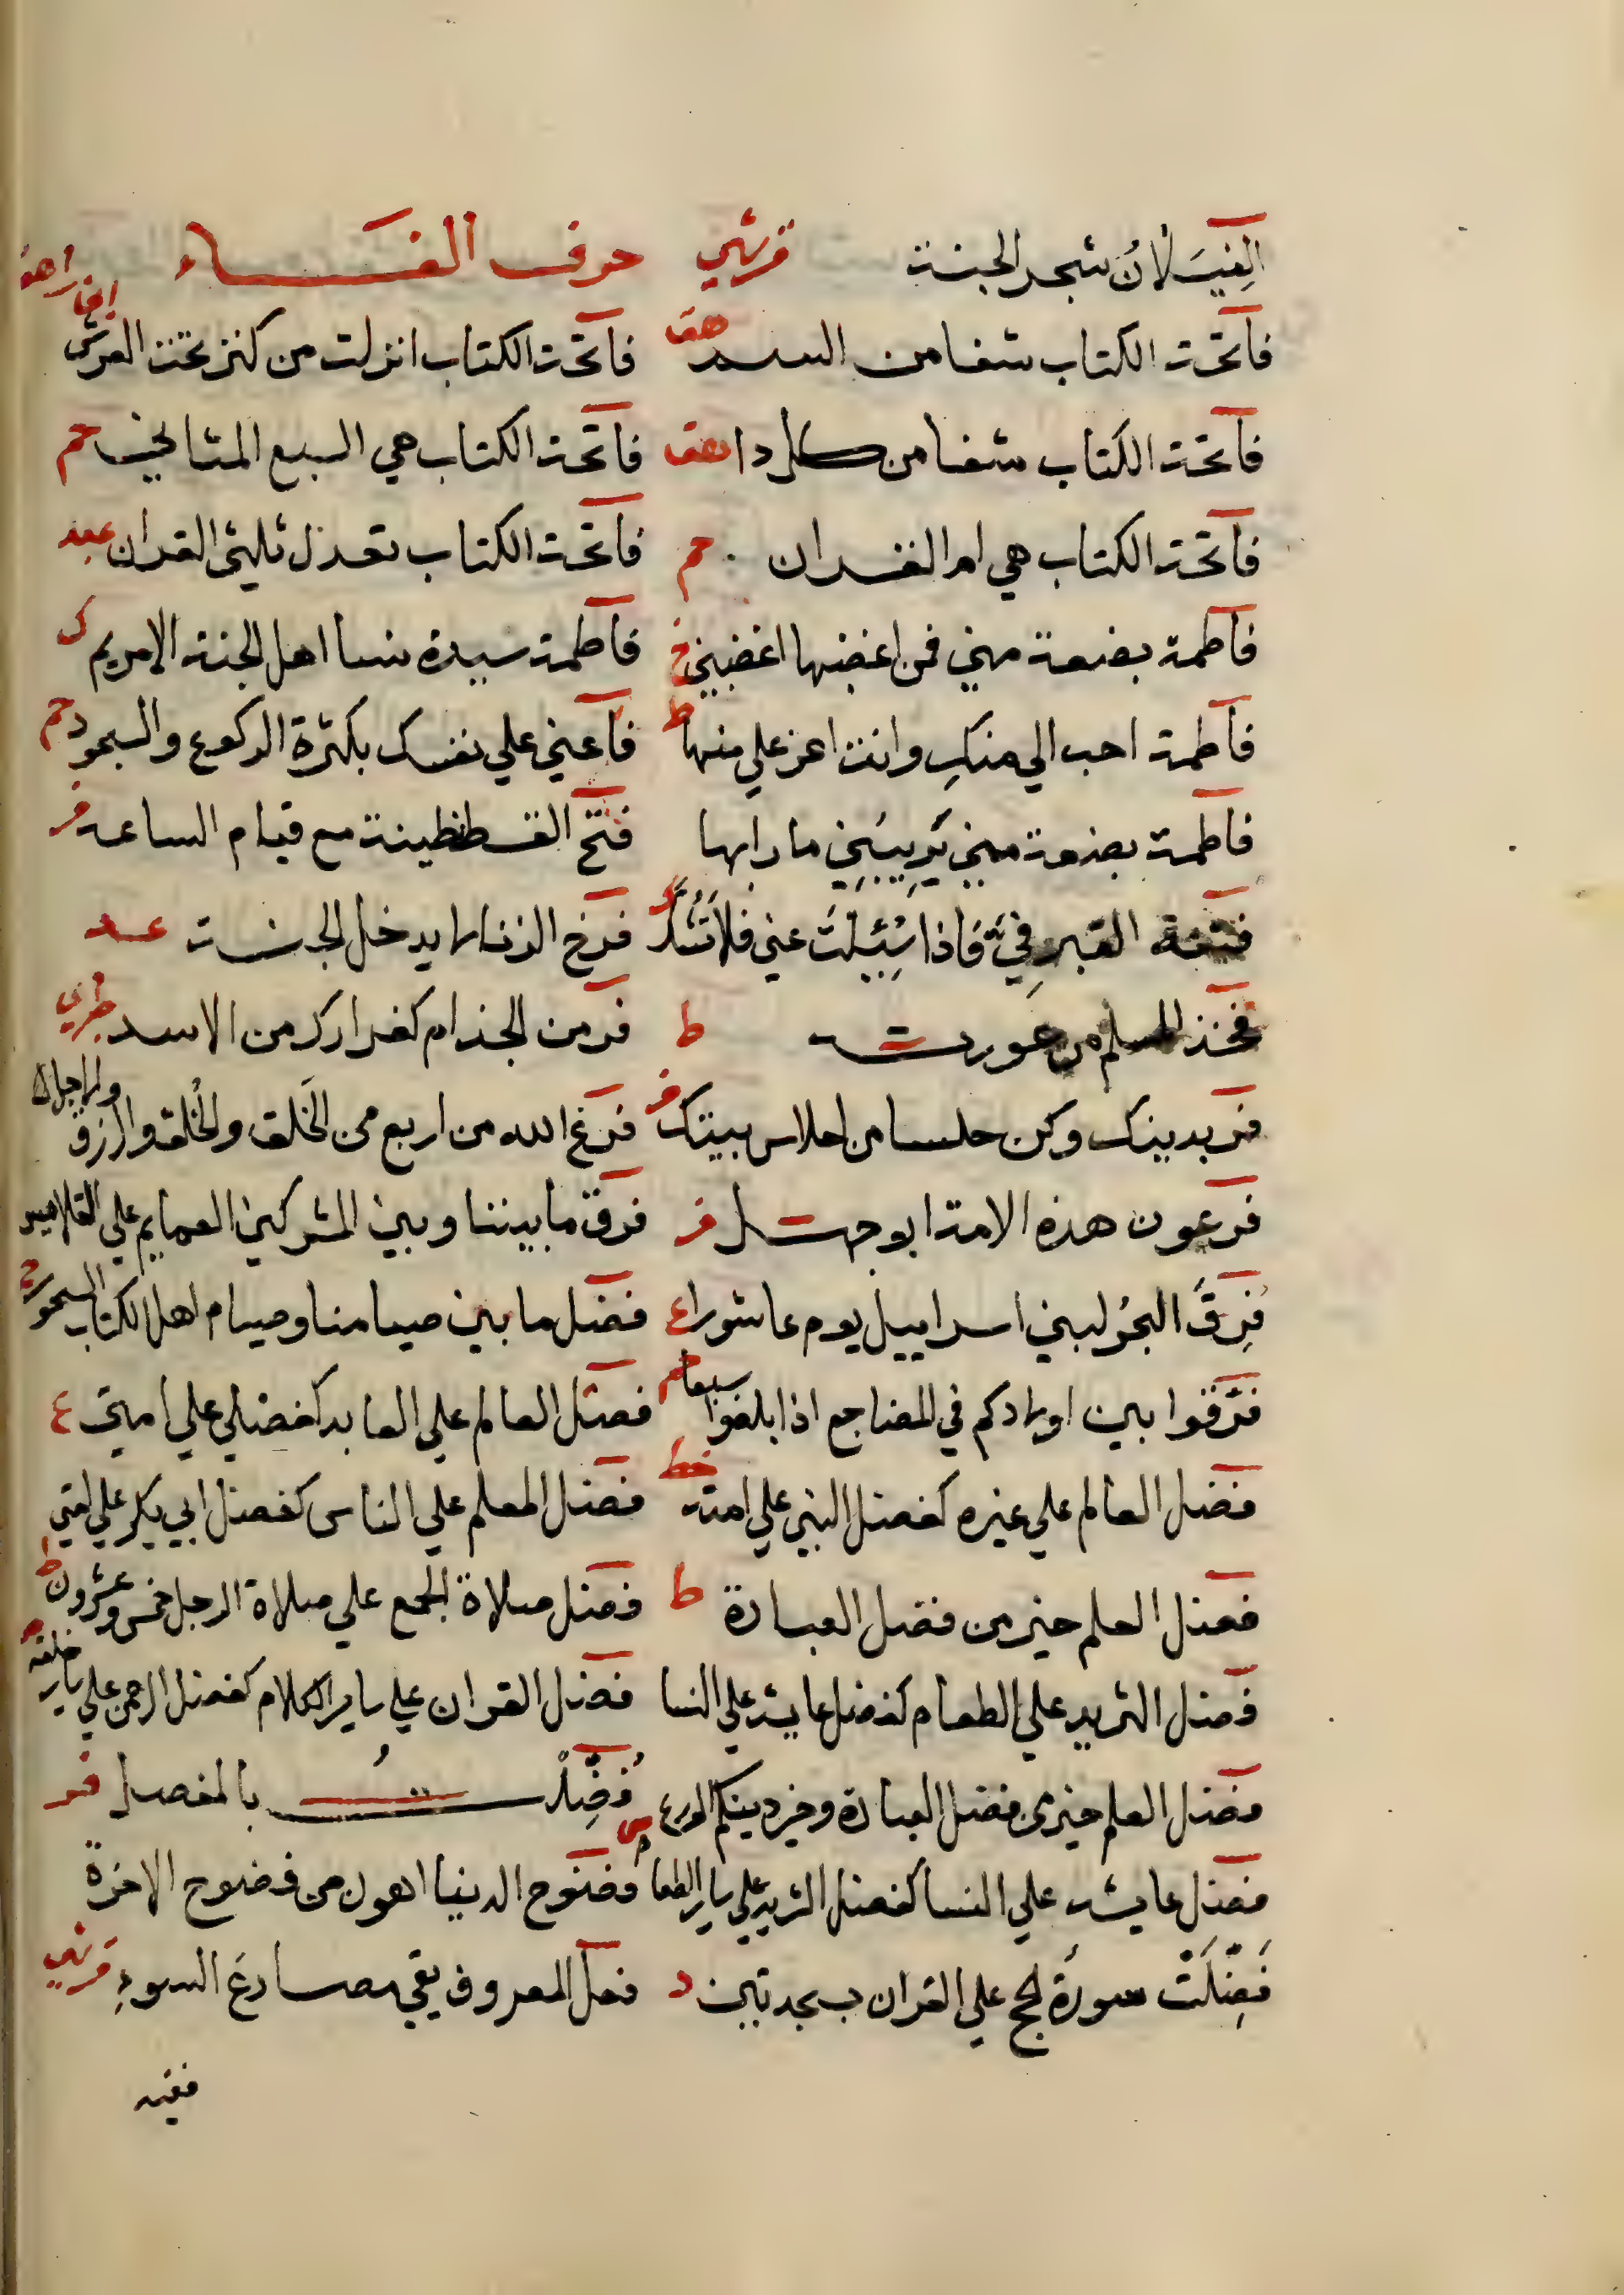 الغيلان شجر الجنة قرشي حرف الفاء
فاتحة الكتاب شفا من السم هق فاتحة الكتاب انزلت من كنز تحت العرش
فاتحة الكتاب شفا من كل دا هق فاتحة الكتاب هي السبع المثاني حم
فاتحة الكتاب هي ام القران حم فاتحة الكتاب تعدل ثلثي القران عبد
فاطمة بضعة مني فمن اغضبها اغضبني خ فاطمة سيدة نسا اهل الجنة الا مريم ك
فاطمة احب الي منك وانت اعز علي منها ط فاعني علي نفسك بكثرة الركوع والسجود حم
فاطمة بضعة مني يَرِيبُنِي ما رابها فتح القسطنطينة مع قيام الساعة
فتنة القبر فِيَّ فَاذا سُئِلْتَ عني فلا تَشُكَّ فرخ الزنا لا يدخل الجنة عد
فخذ المسلم من عورته ط فر من الجذام كفرارك من الاسد طبري
فر بدينك وكن حلسا من احلاس بيتك فرغ الله من اربع من الخَلق والخُلق والرزق والاجل
فرعون هذه الامة ابو جهل فرق ما بيننا وبين المشركين العمايم علي القلانيس
فُرِقَ البحُر لبني اسراييل يوم عاشورا ع فضل ما بين صيامنا وصيام اهل الكتاب السحور
فرقوا بين اولادكم في المضاجع اذا بلغوا سبعا فضل العالم علي العابد كفضلي علي امتي ع
فضل العالم علي غيره كفضل النبي علي امته خط فضل المعلم علي الناس كفضل ابي بكر علي امتي
فضل العلم خير من فضل العبادة ط فضل صلاة الجمع علي صلاة الرجل خمس وعشرون ط
فضل الثريد علي الطعام كفضل عايشة علي النسا فضل القران علي ساير الكلام كفضل الرحمن علي ساير خلقه
فضل العلم خير من فضل العبادة وخير دينكم الورع فُضِّلْتُ بالمفصل
فضل عايشه علي النسا كفضل الثريد علي ساير الطعام فضوح الدنيا اهون من فضوح الاخرة
فُضِّلَتْ سورَة الحج علي القران بسجدتين د فعل المعروف يقي مصارعَ السوءِ قرشي
فقيه